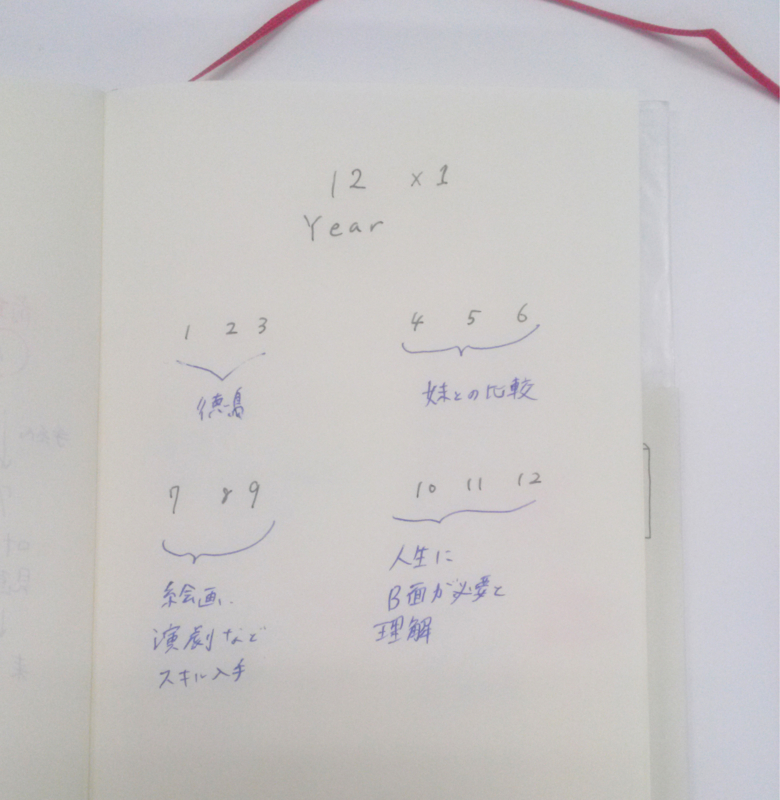 12 ×1
Year
1 2 3
徳島
4 5 6
妹との比較
7 8 9
絵画、
演劇など
スキル入手
10 11 12
人生に
B面が必要と
理解